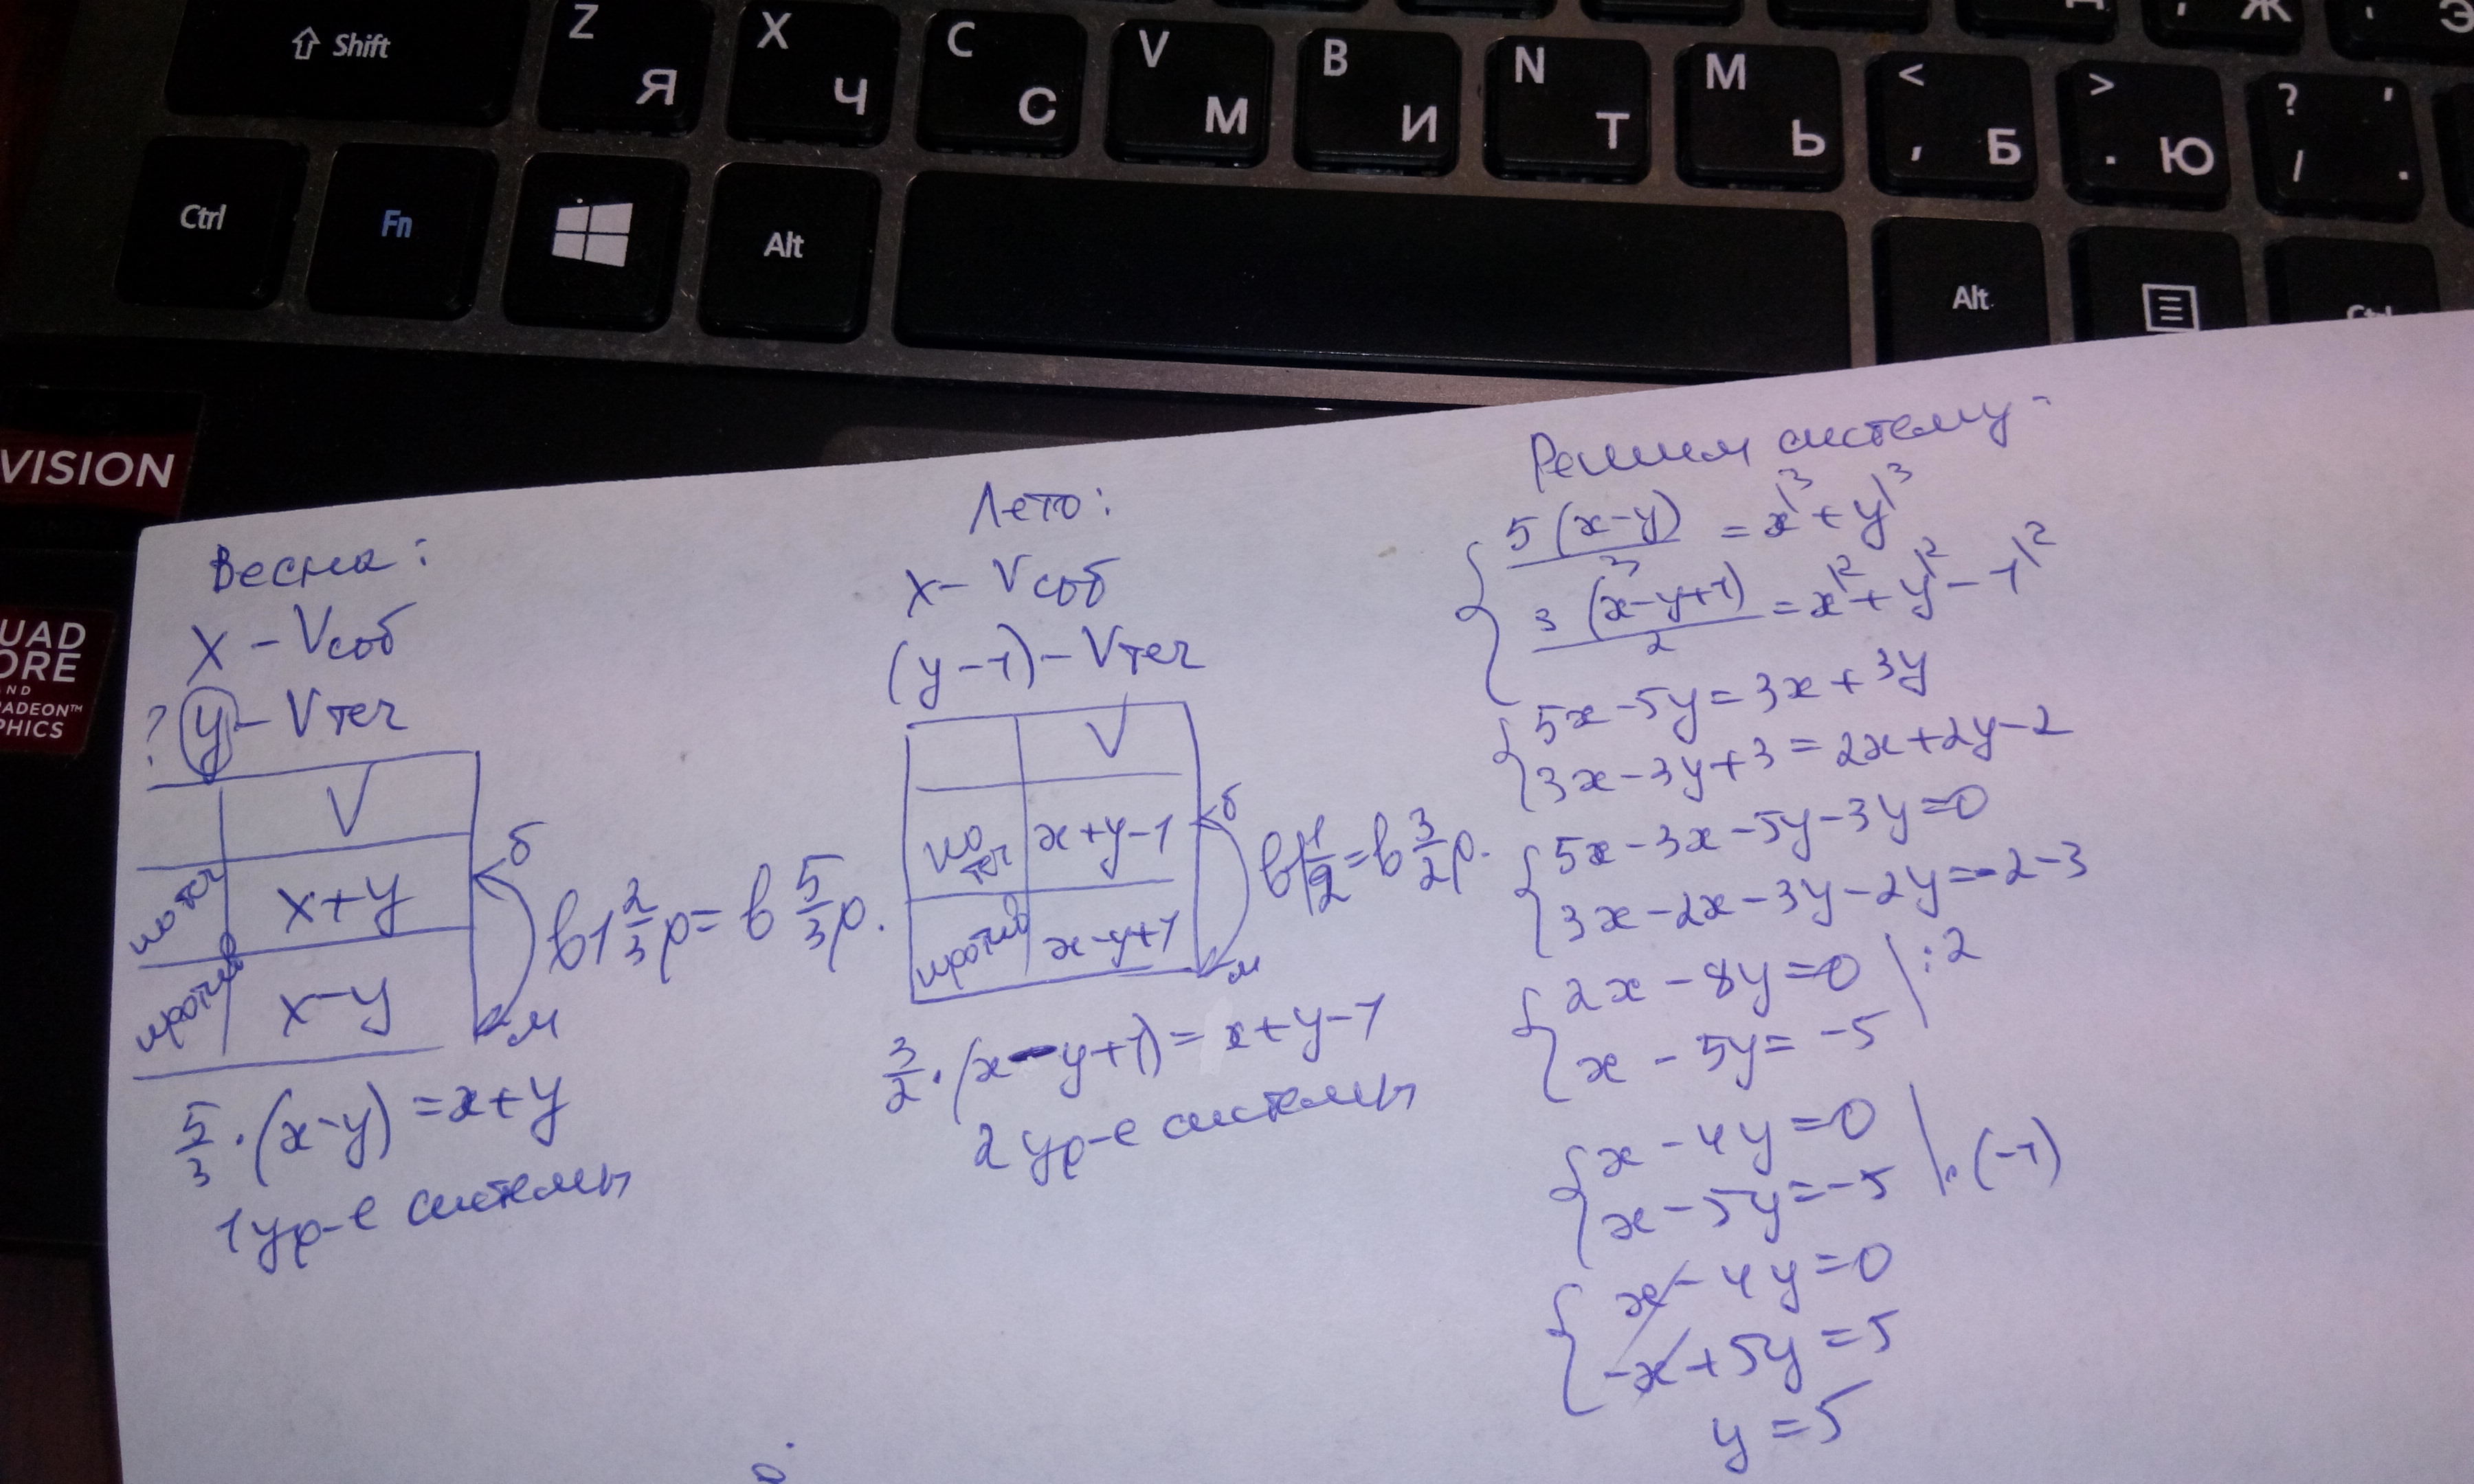 ⇧ Shift
Z Я
X Ч
C С
V М
B И
N Т
M Ь
< , Б
> . Ю
? / ' .
Ж
Э
Ctrl
Fn
Alt
Alt
VISION
QUAD
CORE
AND
RADEON™
GRAPHICS
Весна:
x – Vсоб
? y – Vтеч
V
по теч x+y
против x-y
б
м
в 1 2/3 р = в 5/3 р.
5/3 · (x-y) = x+y
1 ур-е системы
Лето:
x – Vсоб
(y-1) – Vтеч
V
по теч x+y-1
против x-y+1
б
м
в 1 1/2 = в 3/2 р.
3/2 · (x-y+1) = x+y-1
2 ур-е системы
Решим систему:
5(x-y)/3 = x\3 + y\3
3(x-y+1)/2 = x\2 + y\2 - 1\2
5x-5y=3x+3y
3x-3y+3=2x+2y-2
5x-3x-5y-3y=0
3x-2x-3y-2y=-2-3
2x-8y=0 | :2
x-5y=-5
x-4y=0
x-5y=-5 | ·(-1)
x-4y=0
-x+5y=5
y=5